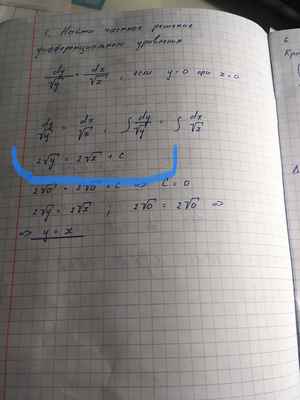 1. Найти частное решение
дифференциального уравнения
dy/√y = dx/√x, если y=0 при x=0
dy/√y = dx/√x, ∫ dy/√y = ∫ dx/√x
2√y = 2√x + C
2√0 = 2√0 + C => C = 0
2√y = 2√x, 2√0 = 2√0 =>
=> y = x